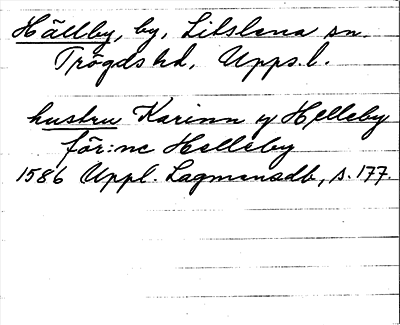 Hällby, by, Litslena sn.
Trögds hd, Upps. l.
hustru Karinn y Helleby
för:ne Helleby
1586 Uppl. Lagmansdb, s. 177.